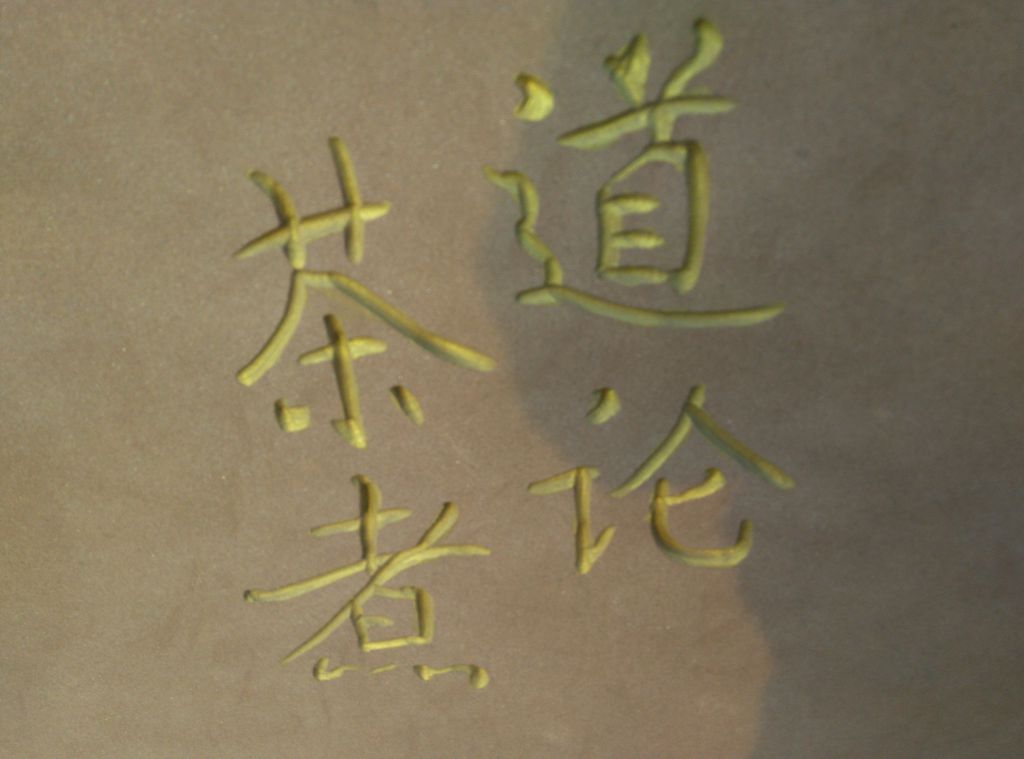 道论
茶煮